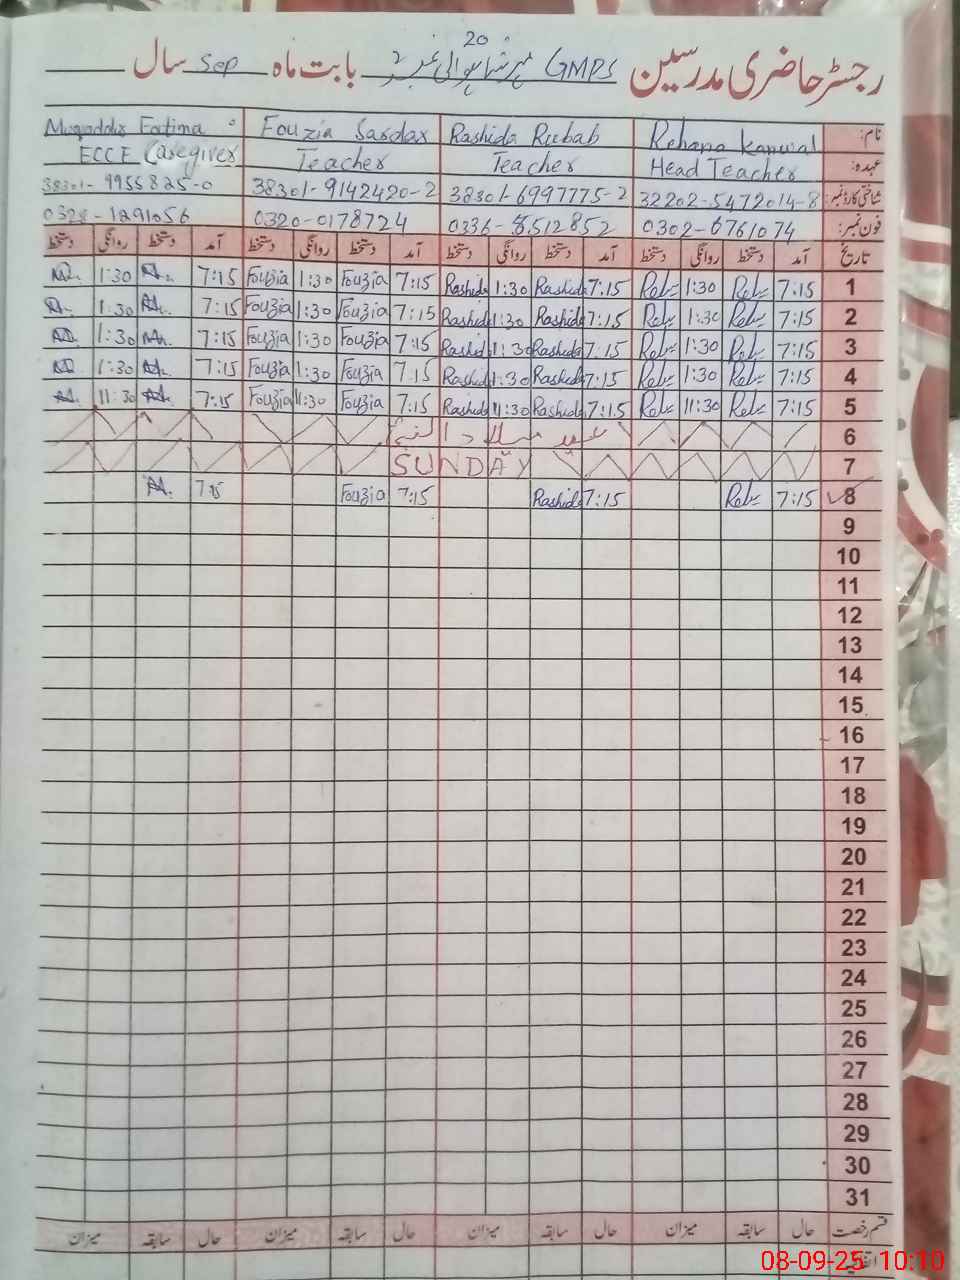 رجسٹر حاضری مدرسین GMPS بابت ماہ Sep سال
20
نام: Rehana Kanwal Rashida Rubab Fouzia Sardar Muqaddix Fatima
عہدہ: Head Teacher Teacher Teacher ECCE Caregiver
شناختی کارڈ نمبر: 32202-5472014-8 38301-6997775-2 38301-9142420-2 38301-9955825-0
فون نمبر: 0302-6761074 0336-8512852 0320-0178724 0328-1291056
تاریخ آمد دستخط روانگی دستخط آمد دستخط روانگی دستخط آمد دستخط روانگی دستخط آمد دستخط روانگی دستخط
1 7:15 1:30 7:15 Rashida 1:30 Rashida 7:15 Fouzia 1:30 Fouzia 7:15 1:30
2 7:15 1:30 7:15 Rashida 1:30 Rashida 7:15 Fouzia 1:30 Fouzia 7:15 1:30
3 7:15 1:30 7:15 Rashida 1:30 Rashid 7:15 Fouzia 1:30 Fouzia 7:15 1:30
4 7:15 1:30 7:15 Rashida 1:30 Rashid 7:15 Fouzia 1:30 Fouzia 7:15 1:30
5 7:15 11:30 7:15 Rashida 11:30 Rashida 7:15 Fouzia 11:30 Fouzia 7:15 11:30
6 عید میلاد النبیؐ
7 SUNDAY
8 7:15 7:15 Rashida 7:15 Fouzia 7:15
9
10
11
12
13
14
15
16
17
18
19
20
21
22
23
24
25
26
27
28
29
30
31
قسم رخصت حال سابقہ میزان حال سابقہ میزان حال سابقہ میزان حال سابقہ میزان
08-09-25 10:10